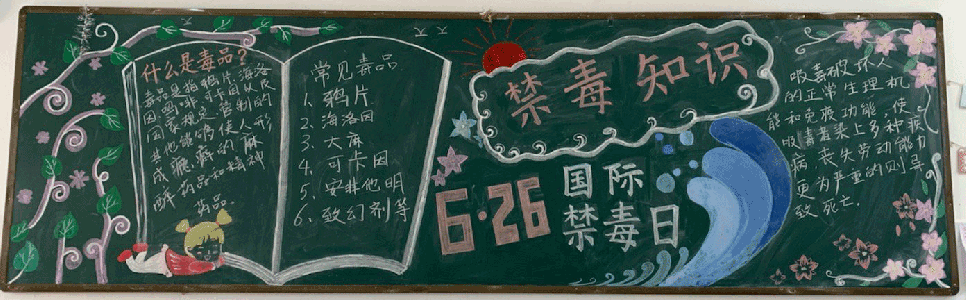 什么是毒品?
毒品是指鸦片,海洛
因,可卡因以及
国家规定管制的
其他能够使人形
成瘾癖的麻
醉药品和精神
药品。
常见毒品
1、鸦片
2、海洛因
3、大麻
4、可卡因
5、安非他明
6、致幻剂等
禁毒知识
6·26
国际
禁毒日
吸毒破坏人
的正常生理机
能和免疫功能,使
吸毒者染上多种疾
病,丧失劳动能力
更为严重的则导
致死亡.